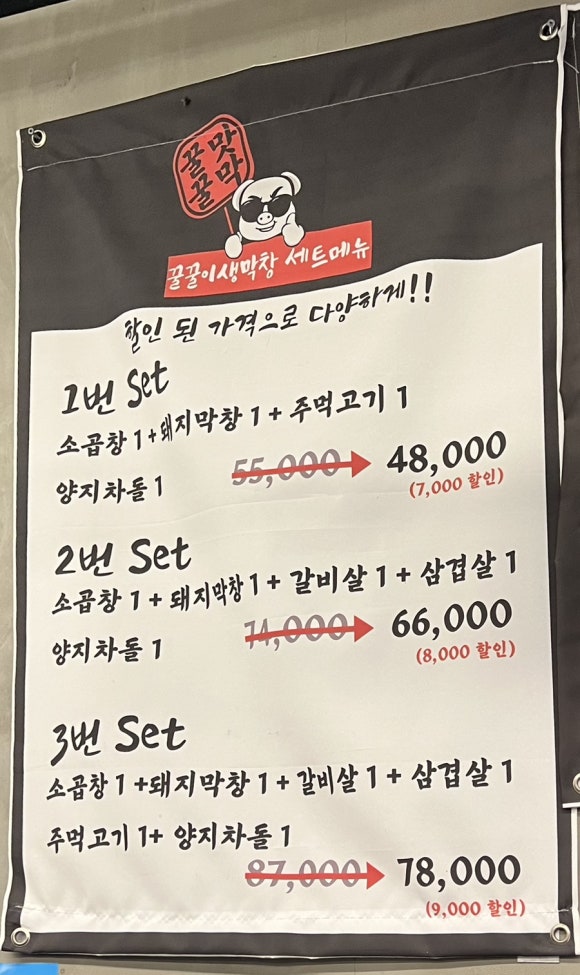 꿀맛
꿀막
꿀꿀이생막창 세트메뉴
할인 된 가격으로 다양하게!!
1번 Set
소곱창 1+돼지막창 1 + 주먹고기 1
양지차돌 1
55,000 48,000
(7,000 할인)
2번 Set
소곱창 1 + 돼지막창 1 + 갈비살 1 + 삼겹살 1
양지차돌 1
74,000 66,000
(8,000 할인)
3번 Set
소곱창 1 +돼지막창 1 + 갈비살 1 + 삼겹살 1
주먹고기 1+ 양지차돌 1
87,000 78,000
(9,000 할인)